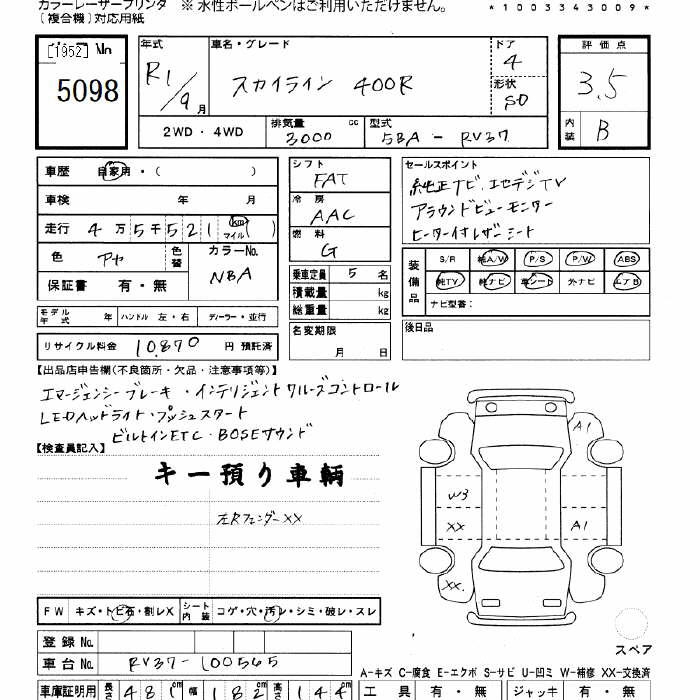 カラーレーザープリンタ ※ 水性ボールペンはご利用いただけません。
〔複合機〕対応用紙
*1003343009*
[1952] No
5098
年式
R1/9月
車名・グレード
スカイライン 400R
ドア
4
形状
SD
評価点
3.5
内装 B
2WD・4WD
排気量 cc
3000
型式
5BA - RV37
車歴 自家用・( )
車検 年 月
走行 4万5千521 (km マイル)
色 アヤ 色替
カラーNo.
NBA
保証書 有・無
モデル年式 年 ハンドル 左・右 ディーラー・並行
リサイクル料金 10,870 円 預託済
シフト
FAT
冷房
AAC
燃料
G
乗車定員 5 名
積載量 kg
総重量 kg
名変期限
月 日
セールスポイント
純正ナビ.エセデジTV
アラウンドビューモニター
ヒーター付レザーシート
装備品
S/R 純A/W P/S P/W ABS
純TV 純ナビ 革シート 外ナビ エアB
ナビ型番:
後日品
【出品店申告欄(不良箇所・欠品・注意事項等)】
エマージェンシーブレーキ・インテリジェントクルーズコントロール
LEDヘッドライト・プッシュスタート
ビルトインETC・BOSEサウンド
【検査員記入】
キー預り車輌
左Rフェンダー××
A1
W3
XX
A1
XX
スペア
FW キズ・トビ石・割レX シート内装 コゲ・穴・汚レ・シミ・破レ・スレ
登録 No.
車台 No. RV37-100565
A-キズ C-腐食 E-エクボ S-サビ U-凹ミ W-補修 XX-交換済
車庫証明用 長さ 481cm 幅 182cm 高さ 144cm
工具 有・無 ジャッキ 有・無